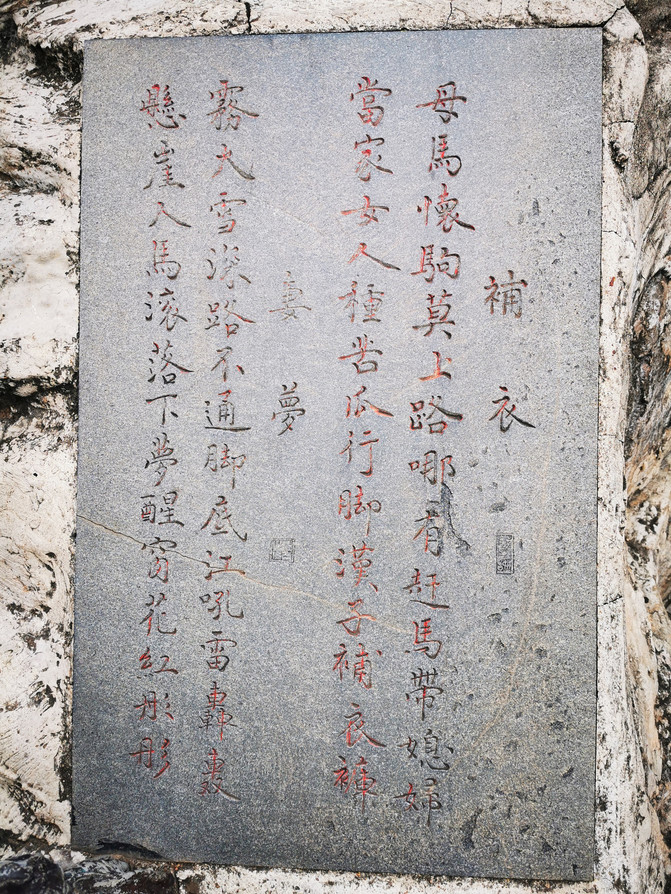 補衣
母馬懷駒莫上路哪有赶馬帶媳婦
當家女人種苦瓜行脚漢子補衣褲
妻夢
霧大雪深路不通脚底江吼雷轟轟
懸崖人馬滾落下夢醒窗花紅彤彤